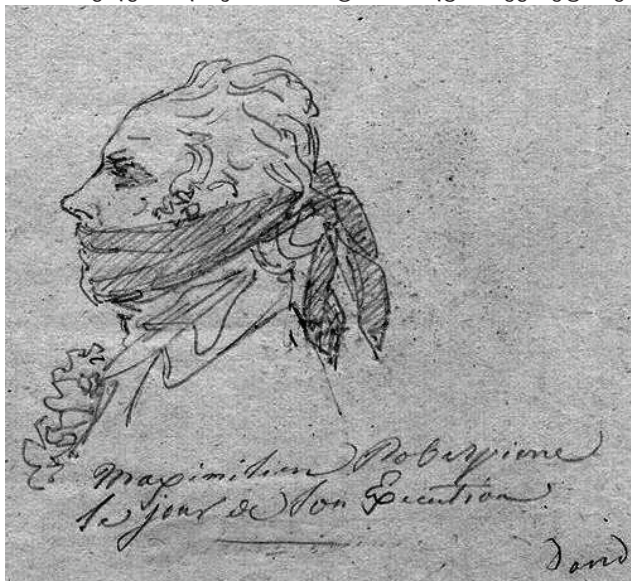 Maximilien Robespierre
le jour de son Execution
David